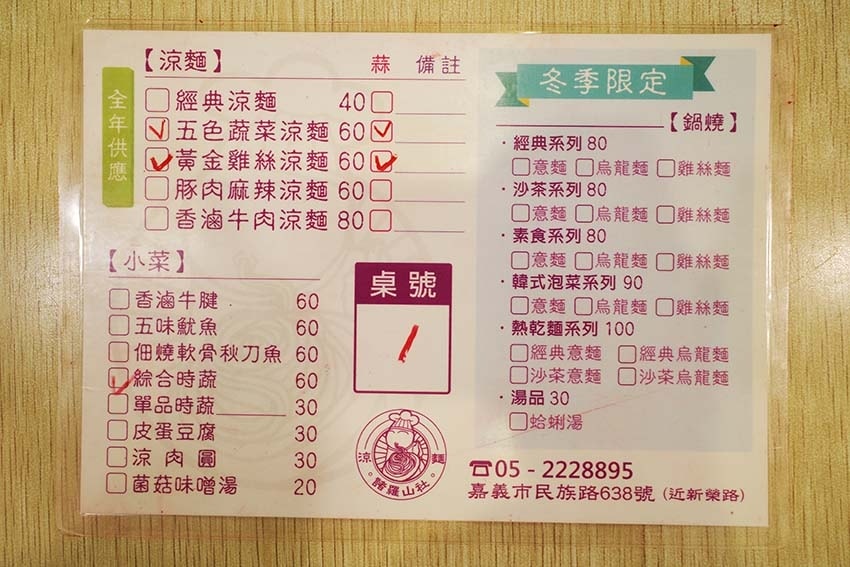 【涼麵】 蒜 備註
全年供應
經典涼麵 40
五色蔬菜涼麵 60
黃金雞絲涼麵 60
豚肉麻辣涼麵 60
香滷牛肉涼麵 80
【小菜】
香滷牛腱 60
五味魷魚 60
佃燒軟骨秋刀魚 60
綜合時蔬 60
單品時蔬 30
皮蛋豆腐 30
涼肉圓 30
菌菇味噌湯 20
桌號
1
涼麵
諸羅山社
冬季限定
【鍋燒】
·經典系列 80
意麵 烏龍麵 雞絲麵
·沙茶系列 80
意麵 烏龍麵 雞絲麵
·素食系列 80
意麵 烏龍麵 雞絲麵
·韓式泡菜系列 90
意麵 烏龍麵 雞絲麵
·熱乾麵系列 100
經典意麵 經典烏龍麵
沙茶意麵 沙茶烏龍麵
·湯品 30
蛤蜊湯
☎05 - 2228895
嘉義市民族路638號 (近新榮路)